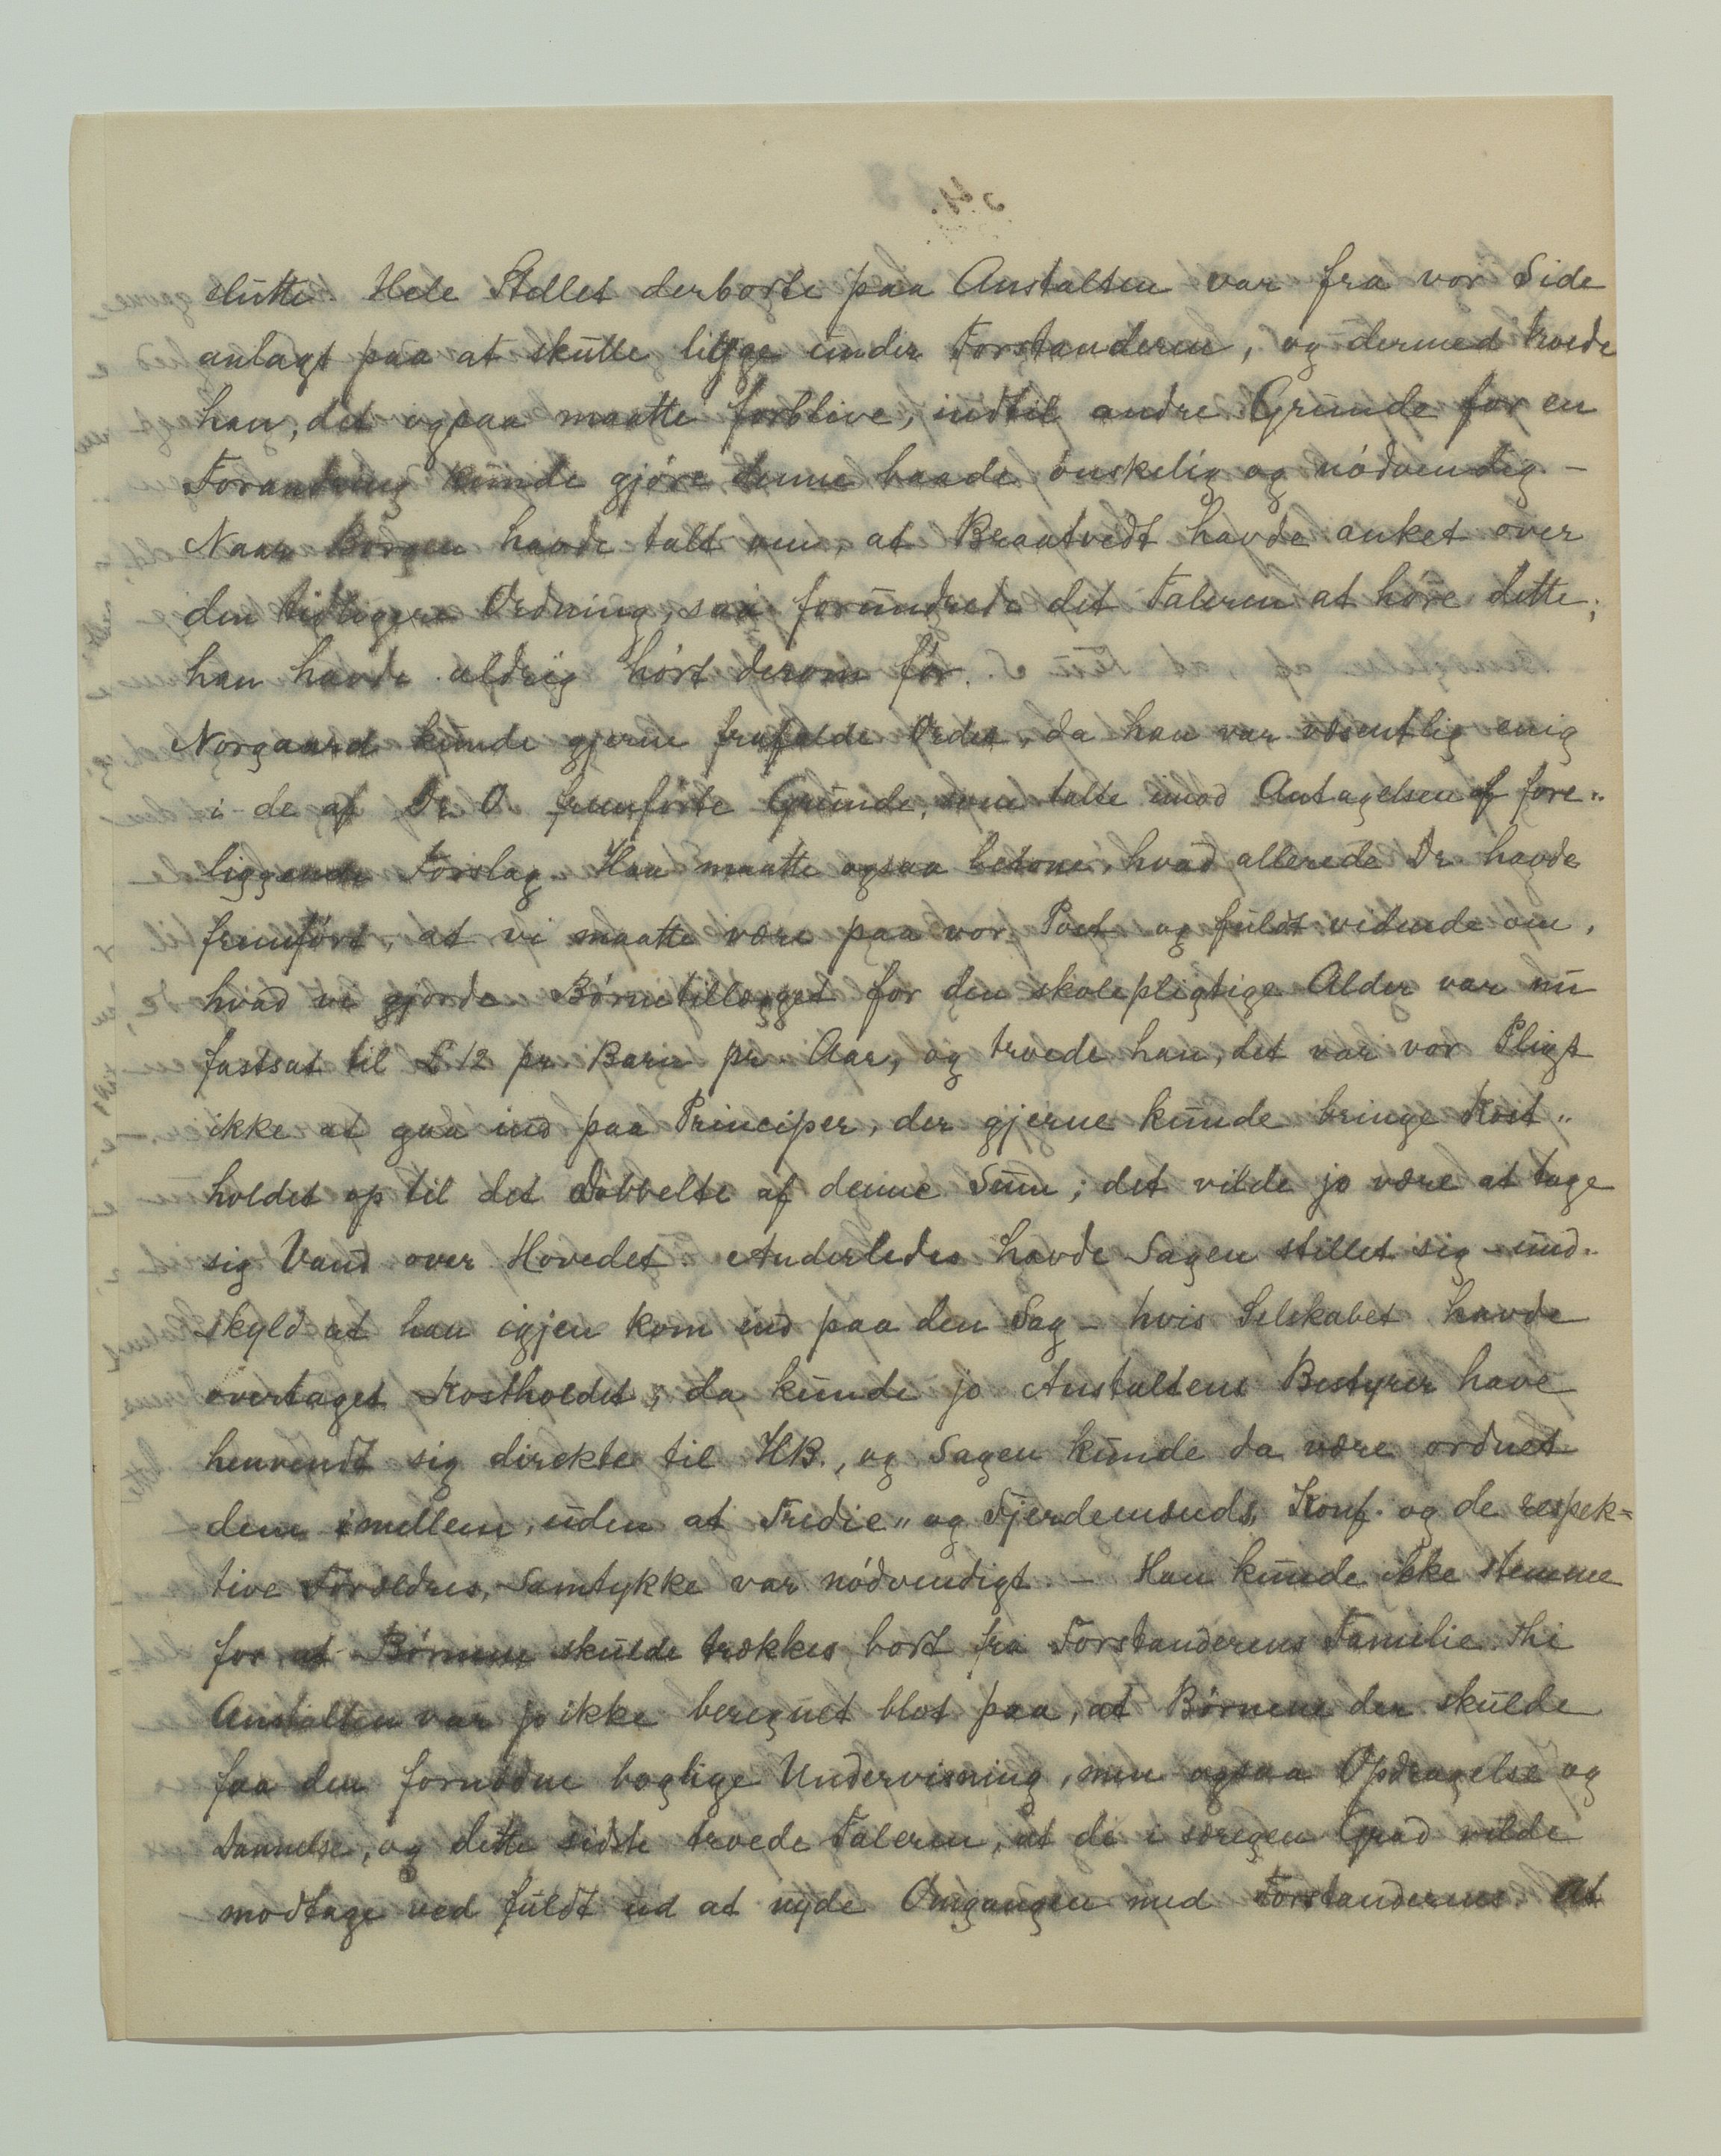 slutte Hele Stellet derborte paa Anstalten var fra vor Side
anlagt paa at skulle ligge under Forstanderen, og dermed troede
han, det ogsaa maatte forblive, indtil andre Grunde for en
Forandring kunde gjöre denne baade önskelig og nödvendig –
Naar Borgen havde talt om, at Braatvedt havde anket over
den tidligere Ordning, saa forundrede det Taleren at höre dette;
han havde aldrig hört derom för.
Norgaard kunde gjerne frafalde Ordet, da han var væsentlig enig
i de af Dr. O. fremförte Grunde, som talte imod Antagelsen af fore„
liggende Forslag. Han maatte ogsaa betone, hvad allerede Dr havde
fremfört, at vi maatte være paa vor Post og fuldt vidende om,
hvad vi gjorde. Börnetillægget for den skolepligtige Alder var nu
fastsat til £12 pr Barn pr Aar, og troede han, det var vor Pligt
ikke at gaa ind paa Principer, der gjerne kunde bringe Kost„
holdet op til det Dobbelte af denne Sum; det vilde jo være at tage
sig Vand over Hovedet. Anderledes havde Sagen stillet sig – und„
skyld at han igjen kom ind paa den Sag – hvis Selskabet havde
overtaget Kostholdet; da kunde jo Anstaltens Bestyrer have
henvendt sig direkte til HB., og Sagen kunde da være ordnet
dem imellem, uden at Tredie„ og Fjerdemands, Konf. og de respek=
tive Forældres, Samtykke var nödvendigt. – Han kunde ikke stemme
for at Börnene skulde trækkes bort fra Forstanderens Familie. Thi
Anstalten var jo ikke beregnet blot paa, at Börnene der skulde
faa den fornödne boglige Undervisning, men ogsaa Opdragelse og
Dannelse, og dette sidste troede Taleren, at de i særegen Grad vilde
modtage ved fuldt ud at nyde Omgangen med Forstanderens. At